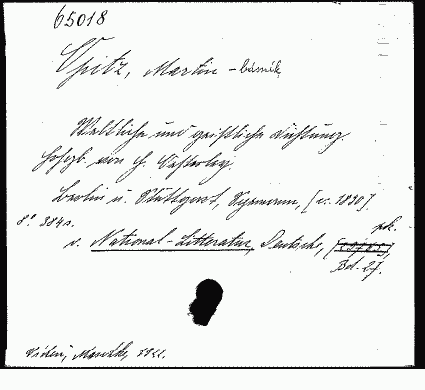 65018
Opitz, Martin - básník
Weltliche und geistliche Dichtung.
Hrsgb. von H. Oesterley.
Berlin u. Stuttgart, Spemann, [v. 1890].
8°. 384 s.
v. National-Litteratur, Deutsche,
Bd. 27.
Vídeň, 1911.